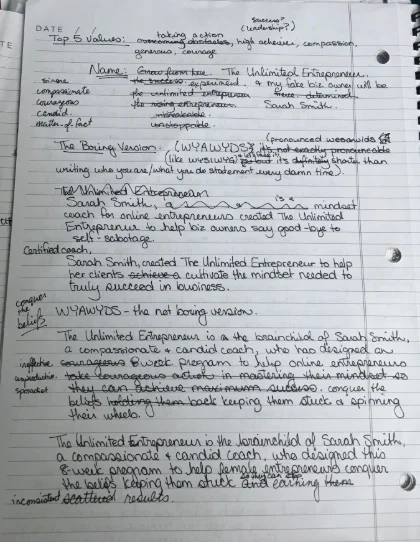 DATE
success?
(leadership?)
Top 5 Values: taking action overcoming obstacles, high achiever, compassion,
generous, courage
Name: Grow from fear - The Unlimited Entrepreneur.
the success experiment. & my fake biz owner will be
the unlimited entrepreneur Sarah Smith.
the rising entrepreneur.
unstoppable.
sincere
compassionate
courageous
candid
matter-of-fact
(pronounced
The Boring Version. (WYAWYDS) it's not exactly pronounceable
(like WYSIWYG) but it's definitely shorter than
writing who you are/what you do statement every damn time).
The Unlimited Entrepreneur
Sarah Smith, a is a mindset
coach for online entrepreneurs created The Unlimited
Entrepreneur to help biz owners say good-bye to
self-sabotage.
Certified coach,
Sarah Smith, created The Unlimited Entrepreneur to help
her clients achieve a cultivate the mindset needed to
truly succeed in business.
conquer
the
beliefs
WYAWYDS - the not boring version.
The Unlimited Entrepreneur is a the brainchild of Sarah Smith,
a compassionate & candid coach, who has designed an
ineffective courageous 8 week program to help online entrepreneurs
unproductive take courageous action in mastering their mindset so
they can achieve maximum success. conquer the
beliefs holding them back keeping them stuck & spinning
their wheels.
The Unlimited Entrepreneur is the brainchild of Sarah Smith,
a compassionate & candid coach, who designed this
8-week program to help female entrepreneurs conquer
so they can stop
the beliefs keeping them stuck and earning them
inconsistent scattered results.